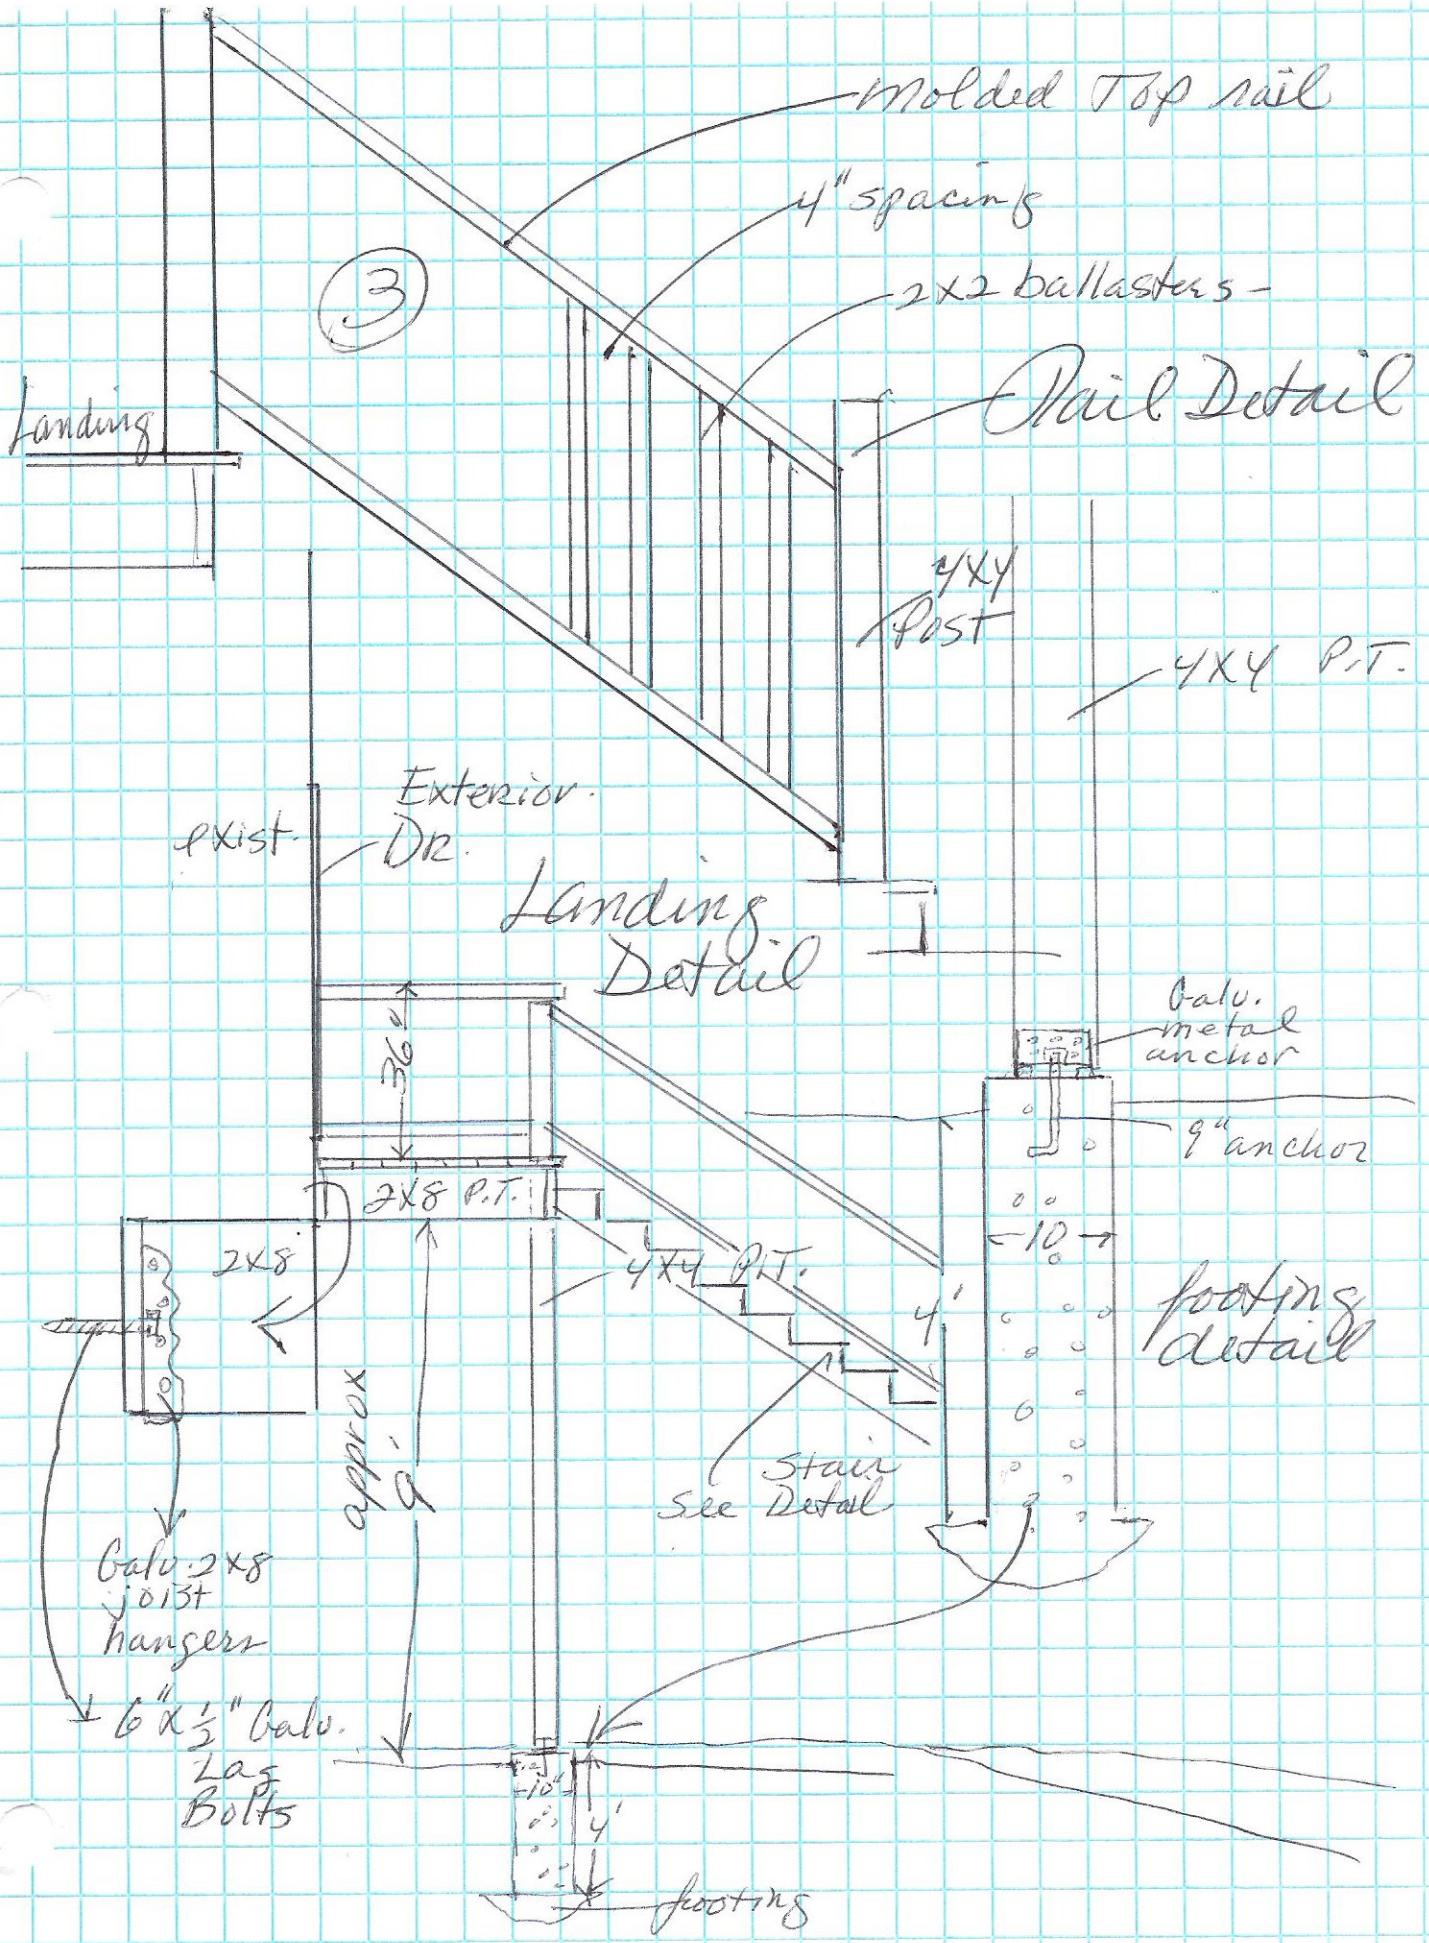 molded Top rail
4" spacing
3
2x2 ballasters -
Rail Detail
Landing
4x4
Post
4x4 P.T.
Exterior
Dr.
exist.
Landing
Detail
36"
Galv.
metal
anchor
9" anchor
2x8 P.T.
10
2x8
4x4 P.T.
4'
footing
detail
approx
9'
Stair
See Detail
Galv. 2x8
joist
hangers
6" x 1/2" Galv.
Lag
Bolts
10"
4'
footing